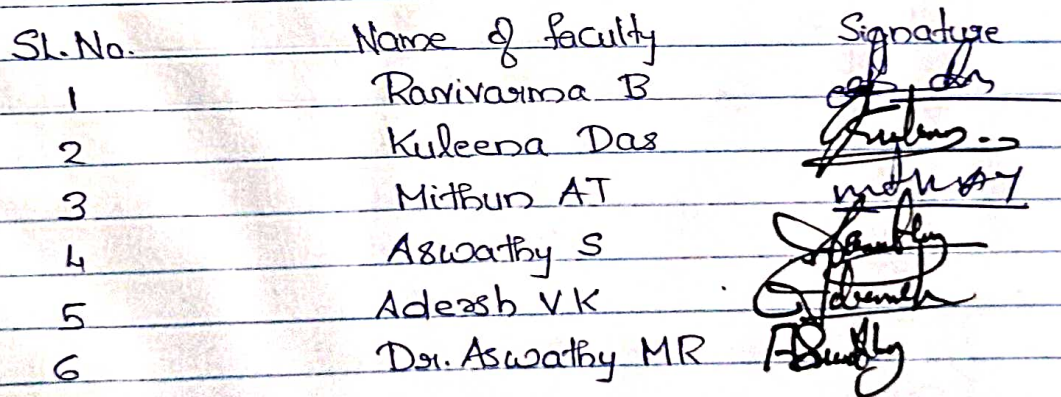 SL.No. Name of faculty Signature
1 Ravivarma B
2 Kuleena Das
3 Mithun AT
4 Aswathy S
5 Adersh VK
6 Dr. Aswathy MR